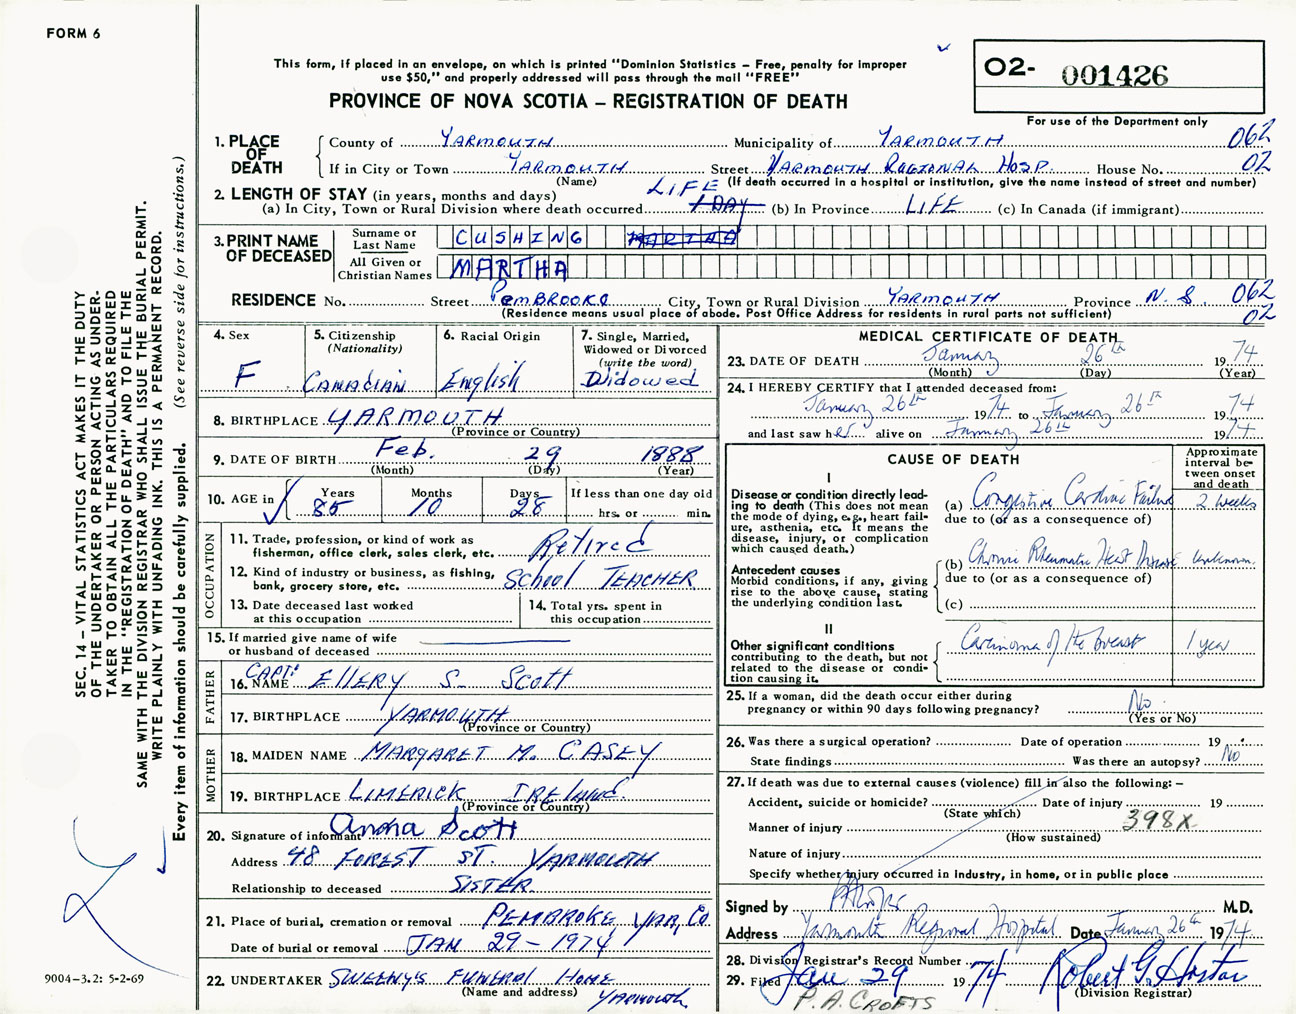 FORM 6
This form, if placed in an envelope, on which is printed "Dominion Statistics – Free, penalty for improper
use $50," and properly addressed will pass through the mail "FREE"
PROVINCE OF NOVA SCOTIA – REGISTRATION OF DEATH
O2- 001426
For use of the Department only
1. PLACE OF DEATH
County of YARMOUTH Municipality of YARMOUTH 062
If in City or Town YARMOUTH Street YARMOUTH REGIONAL HOSP. House No. 02
(Name) (If death occurred in a hospital or institution, give the name instead of street and number)
2. LENGTH OF STAY (in years, months and days) LIFE
(a) In City, Town or Rural Division where death occurred 1 DAY (b) In Province LIFE (c) In Canada (if immigrant)
3. PRINT NAME OF DECEASED
Surname or Last Name CUSHING MARTHA
All Given or Christian Names MARTHA
RESIDENCE No. Street PEMBROOKE City, Town or Rural Division YARMOUTH Province N.S. 062
02
(Residence means usual place of abode. Post Office Address for residents in rural parts not sufficient)
4. Sex
F
5. Citizenship
(Nationality)
CANADIAN
6. Racial Origin
English
7. Single, Married,
Widowed or Divorced
(write the word)
Widowed
8. BIRTHPLACE YARMOUTH
(Province or Country)
9. DATE OF BIRTH Feb. 29 1888
(Month) (Day) (Year)
10. AGE in Years Months Days If less than one day old
85 10 28 hrs. or min.
OCCUPATION
11. Trade, profession, or kind of work as
fisherman, office clerk, sales clerk, etc. Retired
12. Kind of industry or business, as fishing,
bank, grocery store, etc. SCHOOL TEACHER
13. Date deceased last worked
at this occupation
14. Total yrs. spent in
this occupation
15. If married give name of wife
or husband of deceased
FATHER
CAPT.
16. NAME ELLERY S. SCOTT
17. BIRTHPLACE YARMOUTH
(Province or Country)
MOTHER
18. MAIDEN NAME MARGARET M. CASEY
19. BIRTHPLACE LIMERICK IRELAND.
(Province or Country)
20. Signature of informant Anna Scott
Address 48 FOREST ST. YARMOUTH
Relationship to deceased SISTER
21. Place of burial, cremation or removal PEMBROKE, YAR, CO
Date of burial or removal JAN 29 - 1974
22. UNDERTAKER SWEENY'S FUNERAL HOME
(Name and address) YARMOUTH.
MEDICAL CERTIFICATE OF DEATH
23. DATE OF DEATH January 26th 1974
(Month) (Day) (Year)
24. I HEREBY CERTIFY that I attended deceased from:
January 26th 1974 to January 26th 1974
and last saw her alive on January 26th 1974
CAUSE OF DEATH
Approximate
interval be-
tween onset
and death
I
Disease or condition directly lead-
ing to death (This does not mean
the mode of dying, e.g., heart fail-
ure, asthenia, etc. It means the
disease, injury, or complication
which caused death.)
(a) Congestive Cardiac Failure 2 weeks
due to (or as a consequence of)
Antecedent causes
Morbid conditions, if any, giving
rise to the above cause, stating
the underlying condition last.
(b) Chronic Rheumatic Heart Disease unknown.
due to (or as a consequence of)
(c)
II
Other significant conditions
contributing to the death, but not
related to the disease or condi-
tion causing it.
Carcinoma of the breast 1 year
25. If a woman, did the death occur either during
pregnancy or within 90 days following pregnancy? No.
(Yes or No)
26. Was there a surgical operation? Date of operation 19
State findings Was there an autopsy? No
27. If death was due to external causes (violence) fill in also the following: –
Accident, suicide or homicide? Date of injury 19
(State which)
Manner of injury 398X
(How sustained)
Nature of injury
Specify whether injury occurred in industry, in home, or in public place
Signed by M.D.
Address Yarmouth Regional Hospital Date January 26th 1974.
28. Division Registrar's Record Number
29. Filed Jan 29 1974 Robert G.
(Division Registrar)
P. A. CROFTS
SEC. 14 – VITAL STATISTICS ACT MAKES IT THE DUTY
OF THE UNDERTAKER OR PERSON ACTING AS UNDER-
TAKER TO OBTAIN ALL THE PARTICULARS REQUIRED
IN THE "REGISTRATION OF DEATH" AND TO FILE THE
SAME WITH THE DIVISION REGISTRAR WHO SHALL ISSUE THE BURIAL PERMIT.
WRITE PLAINLY WITH UNFADING INK. THIS IS A PERMANENT RECORD.
Every item of information should be carefully supplied. (See reverse side for instructions.)
9004-3.2: 5-2-69